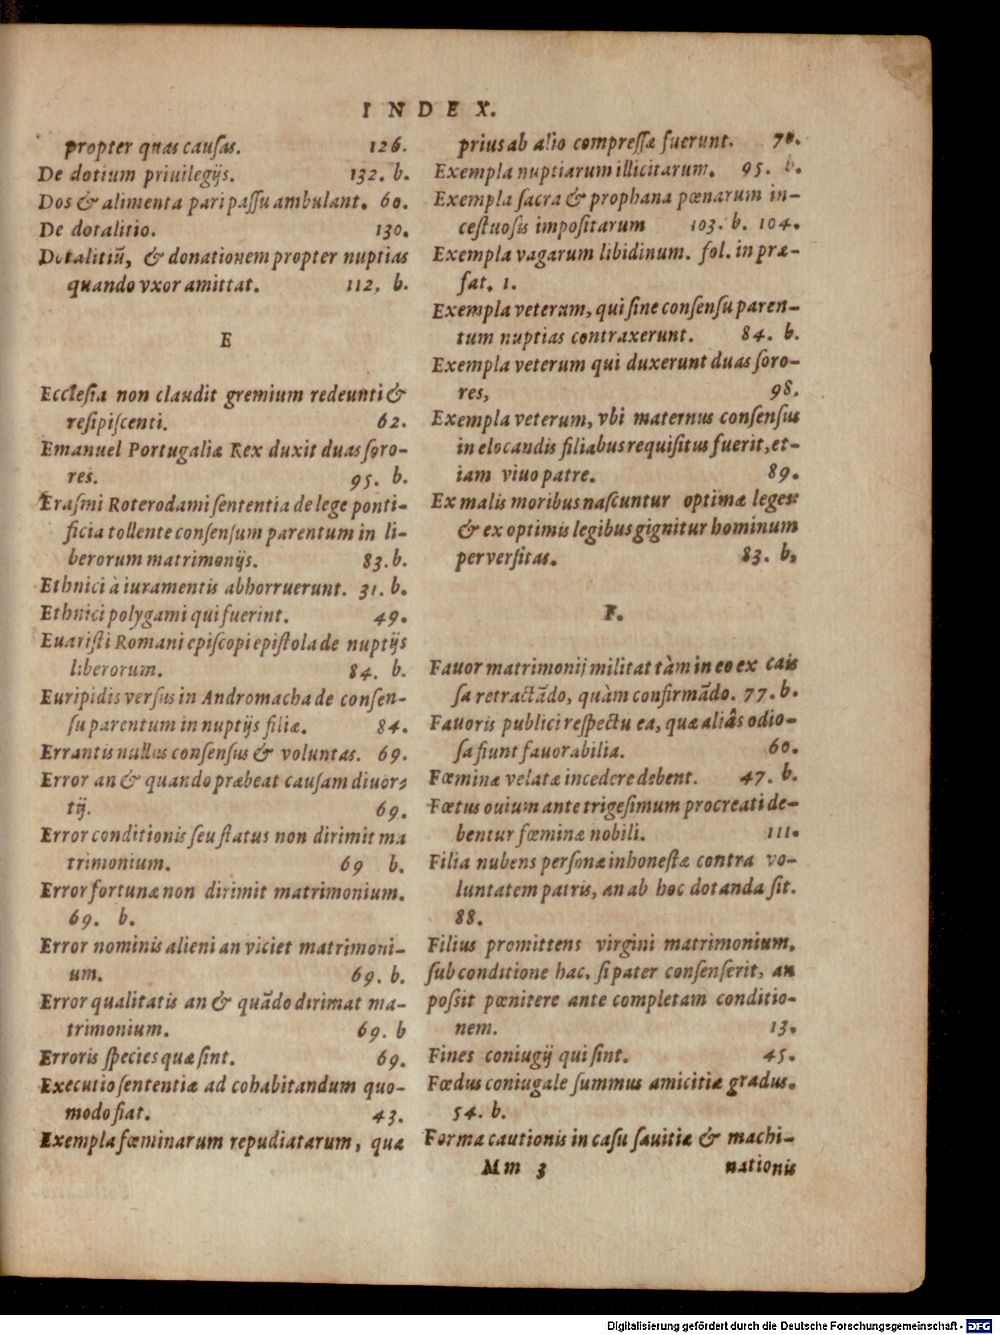 INDEX.
propter quas cauſas. 126.
De dotium priuilegijs. 132. b.
Dos & alimenta pari paſſu ambulant. 60.
De dotalitio. 130.
Dotalitiũ, & donationem propter nuptias
quando vxor amittat. 112, b.
E
Eccleſia non claudit gremium redeunti &
reſipiſcenti. 62.
Emanuel Portugaliæ Rex duxit duas ſoro-
res. 95. b.
Eraſmi Roterodami ſententia de lege ponti-
ficia tollente conſenſum parentum in li-
berorum matrimonijs. 83. b.
Ethnici à iuramentis abhorruerunt. 31. b.
Ethnici polygami qui fuerint. 49.
Euariſti Romani epiſcopi epiſtola de nuptijs
liberorum. 84. b.
Euripidis verſus in Andromacha de conſen-
ſu parentum in nuptijs filiæ. 84.
Errantis nullus conſenſus & voluntas. 69.
Error an & quando præbeat cauſam diuor-
tij. 69.
Error conditionis ſeu ſtatus non dirimit ma
trimonium. 69 b.
Error fortunæ non dirimit matrimonium.
69. b.
Error nominis alieni an viciet matrimoni-
um. 69. b.
Error qualitatis an & quãdo dirimat ma-
trimonium. 69. b
Erroris ſpecies quæ ſint. 69.
Executio ſententiæ ad cohabitandum quo-
modo fiat. 43.
Exempla fœminarum repudiatarum, quæ
prius ab alio compreſſæ fuerunt. 78.
Exempla nuptiarum illicitarum. 95. b.
Exempla ſacra & prophana pœnarum in-
ceſtuoſis impoſitarum 103. b. 104.
Exempla vagarum libidinum. fol. in præ-
fat. 1.
Exempla veterum, qui ſine conſenſu paren-
tum nuptias contraxerunt. 84. b.
Exempla veterum qui duxerunt duas ſoro-
res, 98.
Exempla veterum, vbi maternus conſenſus
in elocandis filiabus requiſitus fuerit, et-
iam viuo patre. 89.
Ex malis moribus naſcuntur optimæ leges
& ex optimis legibus gignitur hominum
perverſitas. 83. b.
F.
Fauor matrimonij militat tàm in eo ex cais
ſa retractãdo, quàm confirmãdo. 77. b.
Fauoris publici reſpectu ea, quæ aliâs odio-
ſa fiunt fauorabilia. 60.
Fœminæ velatæ incedere debent. 47. b.
Fœtus ouium ante trigeſimum procreati de-
bentur fœminæ nobili. 111.
Filia nubens perſonæ inhoneſtæ contra vo-
luntatem patris, an ab hoc dotanda ſit.
88.
Filius promittens virgini matrimonium,
ſub conditione hac, ſi pater conſenſerit, an
poſsit pœnitere ante completam conditio-
nem. 13.
Fines coniugij qui ſint. 45.
Fœdus coniugale ſummus amicitiæ gradus.
54. b.
Forma cautionis in caſu ſæuitiæ & machi-
Mm 3 nationis
Digitalisierung gefördert durch die Deutsche Forschungsgemeinschaft - DFG